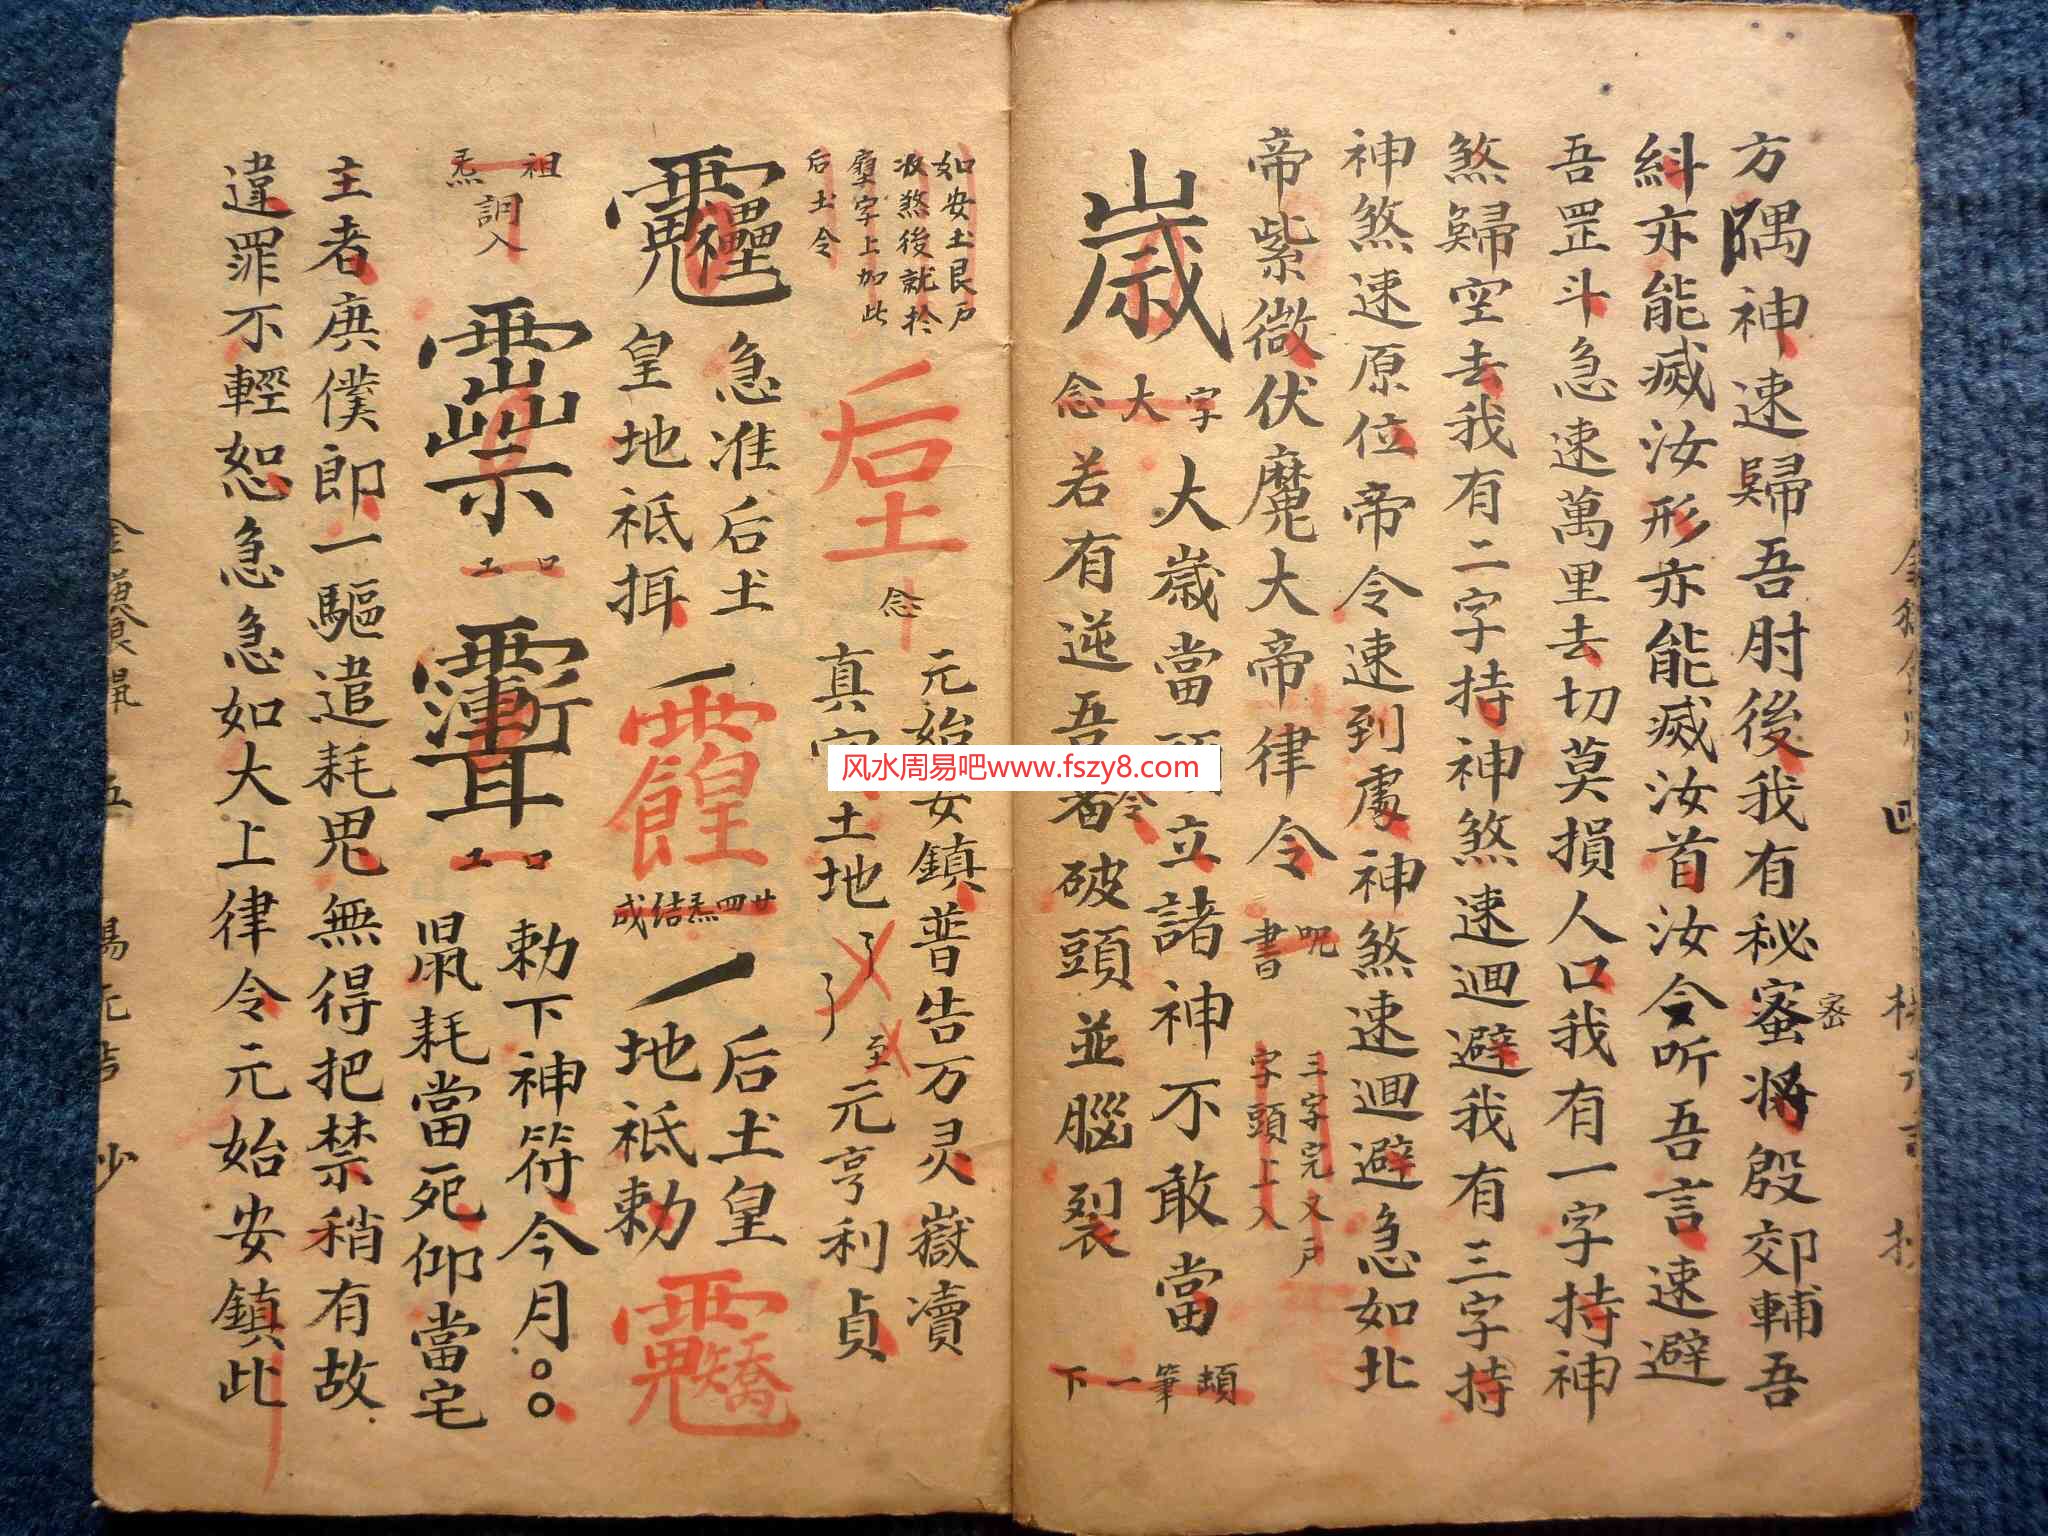 方隅神速歸吾肘後我有秘蜜將殷郊輔吾
密
糾亦能滅汝形亦能滅汝首汝今听吾言速避
吾罡斗急速萬里去切莫損人口我有一字持神
煞歸空去我有二字持神煞速迴避我有三字持
神煞速原位帝令速到處神煞速迴避急如北
帝紫微伏魔大帝律令
書呪
三字完又戶
字頭上入
歲
字大念
大歲當頭立諸神不敢當
若有逆吾者破頭並腦裂
令
頡筆一下
風水周易吧www.fszy8.com
如安土艮戶
收煞後就扵
字上加此
后土令
后土
念
元始安鎮普告万灵嶽瀆
真官土地
至元亨利貞
急准后土
皇地祇揖
廿四炁結成
后土皇
地祇勅
祖炁調入
口工
口工
勅下神符今月〇〇
鼠耗當死仰當宅
主者庚僕即一驅遣耗鬼無得把禁稍有故
違罪不輕恕急急如大上律令元始安鎮此
五
楊元吉
抄